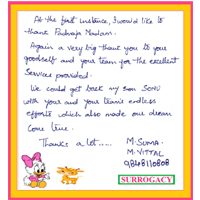 At the first instance, I would like to
thank Padmaja Madam.
Again a very big thank you to your
goodself and your team for the excellent
Services provided.
We could get back my own SONU
with your and your team's endless
efforts which also made our dream
Come true.
Thanks a lot......
M. SUMA.
M. VITTAL
9848110808
SURROGACY